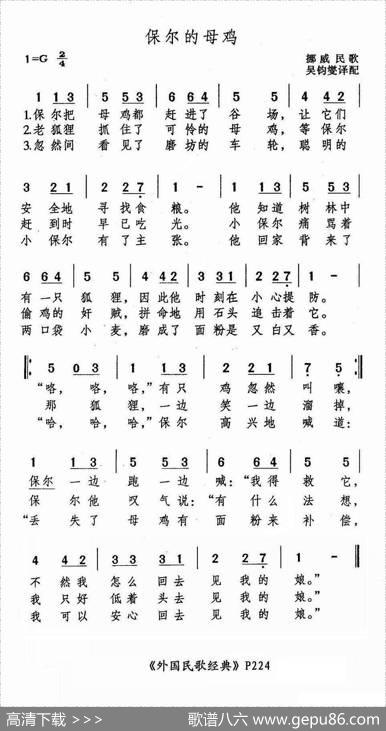 保尔的母鸡
1=G 2/4
挪威民歌
吴钧燮译配
1 13 | 5 53 | 6 64 | 5 5 | 4 42 |
1.保尔把 母鸡都 赶进了 谷场，让它们
2.老狐狸 抓住了 可怜的 母鸡，等保尔
3.忽然间 看见了 磨坊的 车轮，聪明的
3 21 | 2 27 | 1 - | 1 13 | 5 53 |
安全地 寻找食粮。 他知道 树林中
赶到时 早已吃光。 小保尔 痛骂着
小保尔 有了主张。 他回家 背来了
6 64 | 5 5 | 4 42 | 33 31 | 2 27 | 1 - |
有一只 狐狸，因此他 时刻在 小心提防。
偷鸡的 奸贼，拼命地 用石头 追击着它。
两口袋 小麦，磨成了 面粉是 又白又香。
5 03 | 1 11 | 1 13 | 4 21 | 7 5 |
“咯，咯，咯，”有只 鸡忽然 叫嚷，
那狐狸，一边 笑一边 溜掉，
“哈，哈，哈，”保尔 高兴地 喊道：
1 13 | 5 53 | 6 64 | 5 5 |
保尔 一边 跑一边 喊：“我得 救它，
保尔他 叹气说：“有什么 法想，
“丢失了 母鸡有 面粉来 补偿，
4 42 | 33 31 | 2 27 | 1 - |
不然我 怎么回去 见我的 娘。”
我只好 低着头去 见我的 娘。”
我可以 安心回去 见我的 娘。”
《外国民歌经典》P224
高清下载 >>>
歌谱八六 www.gepu86.com